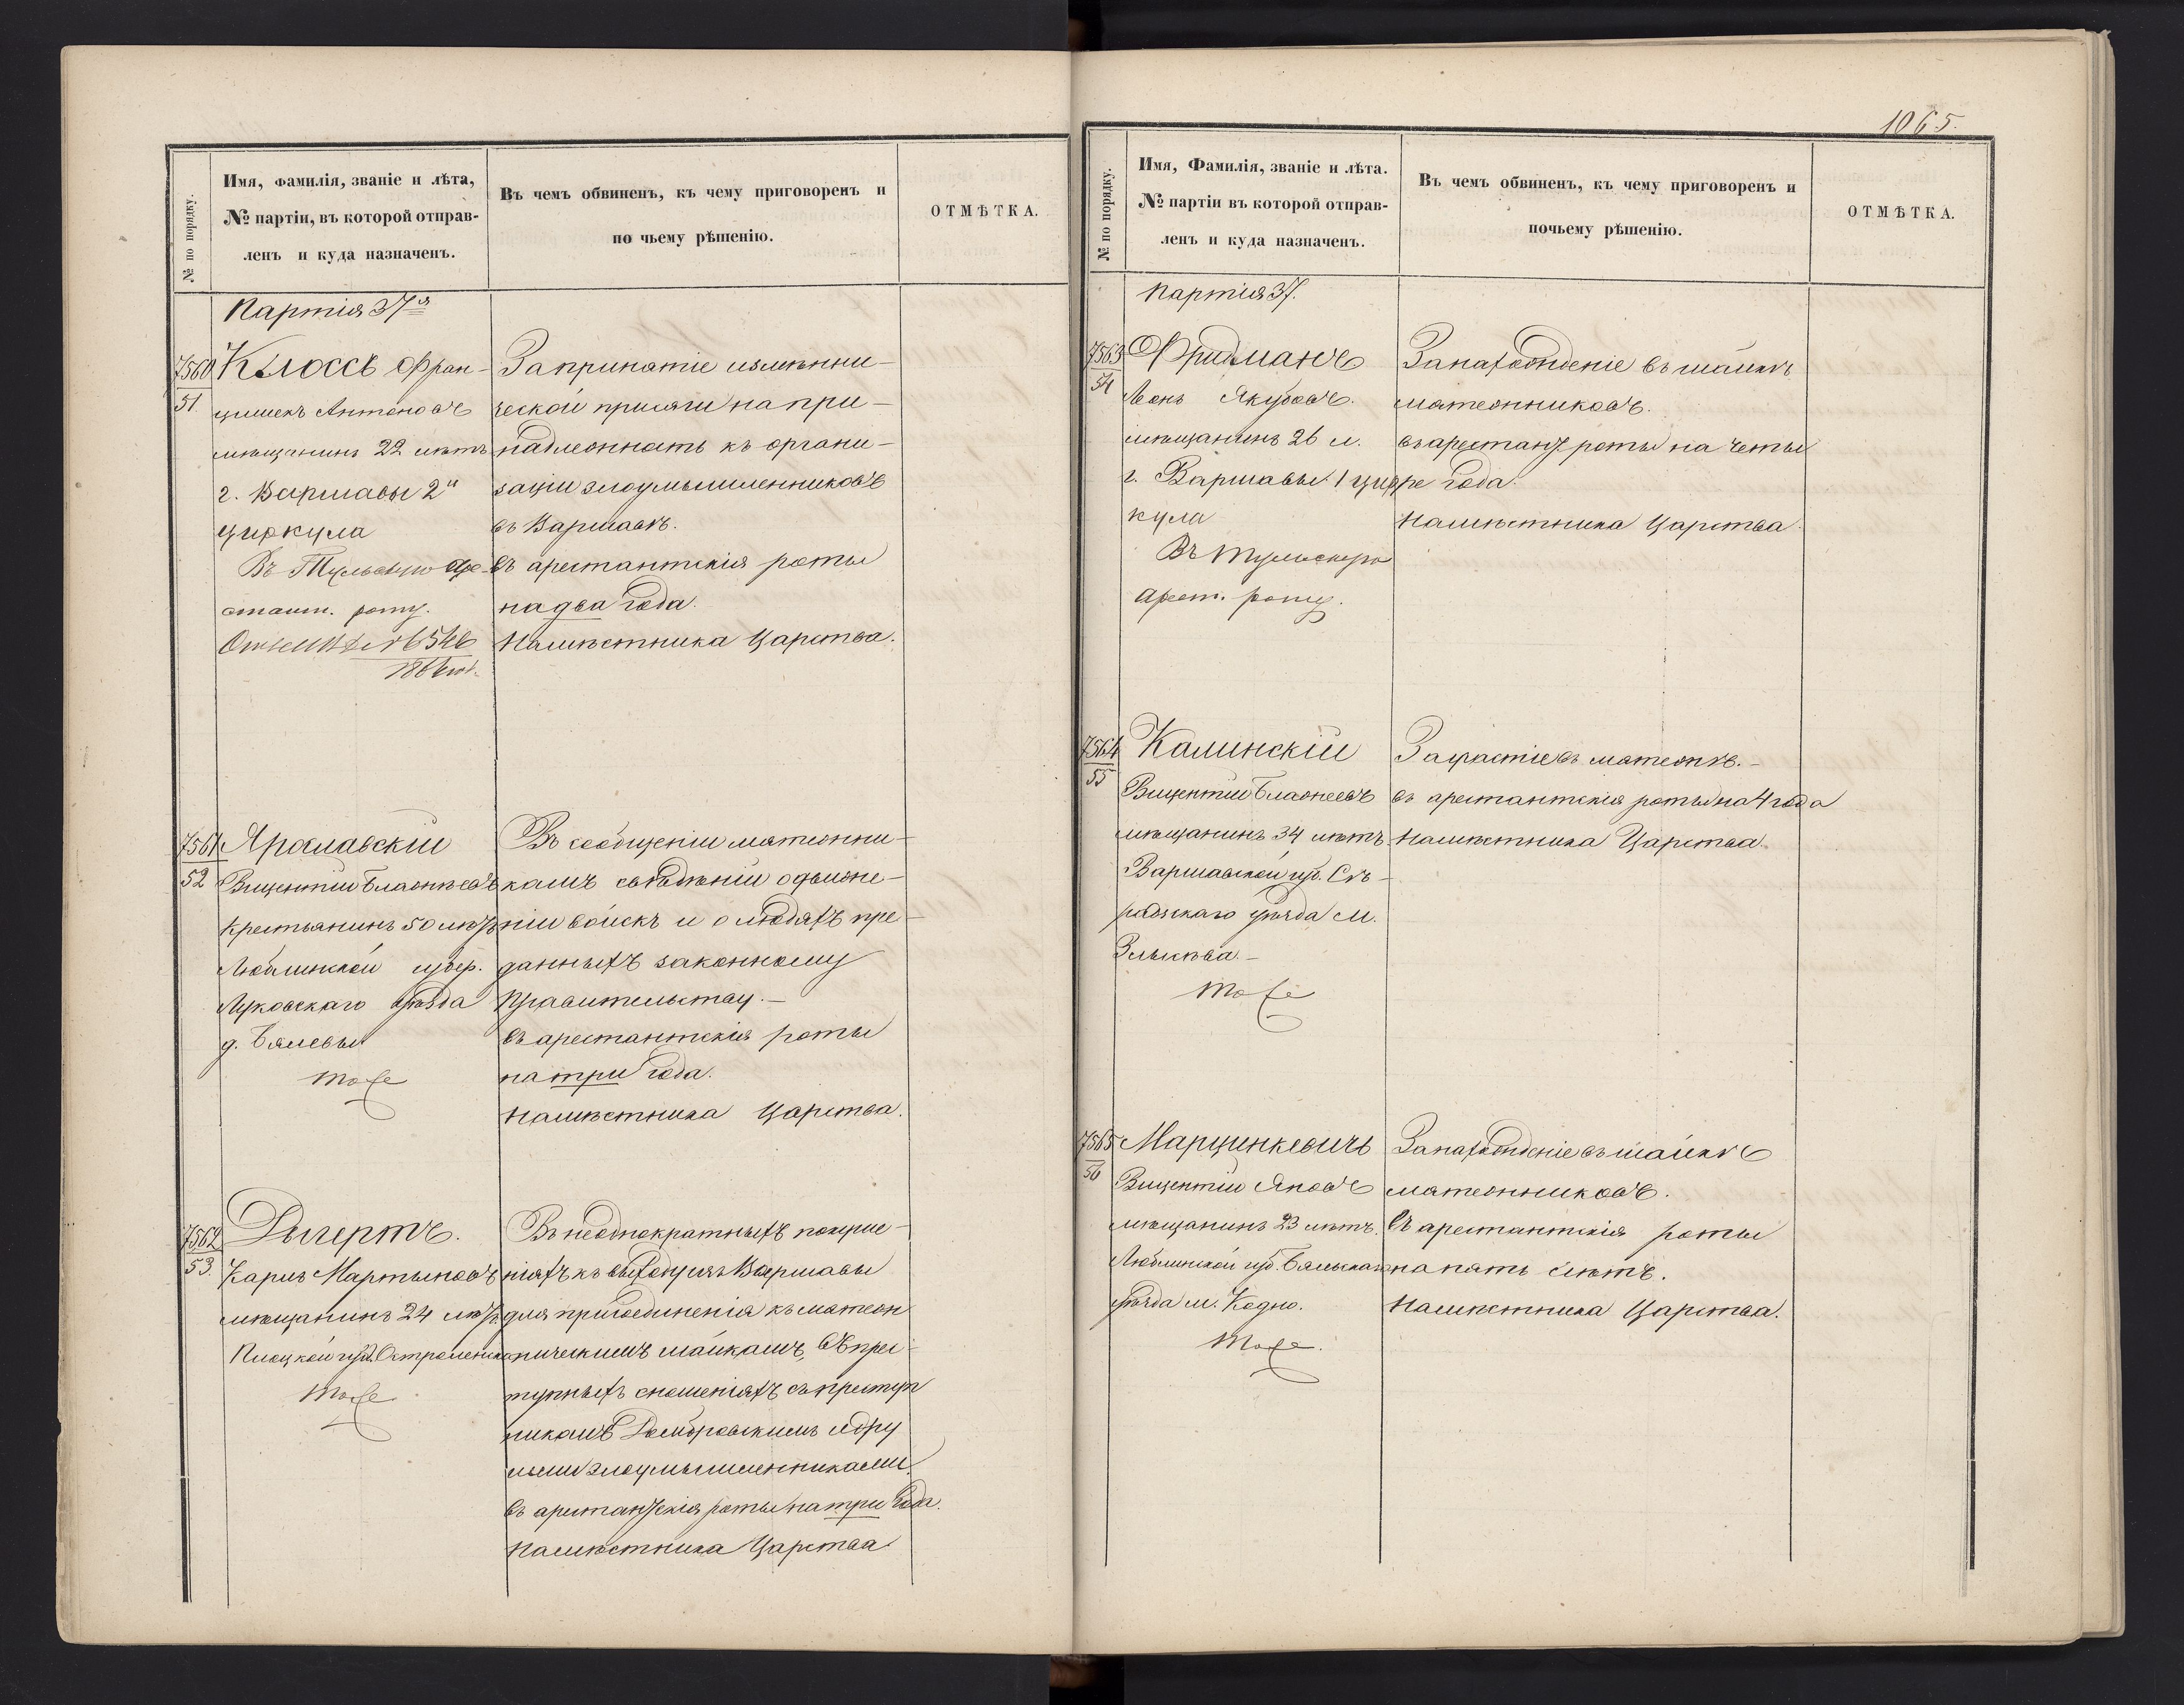 № по порядку.
Имя, фамилія, званіе и лѣта,
№ партіи, въ которой отправ-
ленъ и куда назначенъ.
Въ чемъ обвиненъ, къ чему приговоренъ и
по чьему рѣшенію.
ОТМѢТКА.
Партія 37я
7560
51.
Клоссъ Фран-
цишекъ Антоновъ
мѣщанинъ 22 лѣтъ
г. Варшавы 2го
циркула
Въ Тульскую аре-
стант. роту.
1866
За принятіе измѣнни-
ческой присяги на при-
надлежность къ органи-
заціи злоумышленниковъ
въ Варшавѣ.
въ арестантскія роты
на два года.
Намѣстника Царства.
7561
52
Ярославскій
Вицентій Блажеевъ
крестьянинъ 50 лѣтъ
Люблинской губер.
Луковскаго уѣзда
д.
тоже
Въ сообщеніи мятежни-
камъ свѣдѣній о движе-
ніи войскъ и о людяхъ пре-
данныхъ законному
Правительству.-
въ арестантскія роты
на три года.
Намѣстника Царства.
7562
53.
Дигертъ.
Карлъ Мартыновъ
мѣщанинъ 24 лѣтъ
Плоцкой губ.
тоже
Въ неоднократныхъ покуше-
ніяхъ къ выходу изъ Варшавы
для присоединенія къ мятеж
ническимъ шайкамъ, въ прес-
тупныхъ сношеніяхъ съ преступ
никомъ Домбровскимъ и дру
гими злоумышленниками.
въ арестантскія роты на три года.
Намѣстника Царства.
1065.
№ по порядку.
Имя, Фамилія, званіе и лѣта.
№ партіи въ которой отправ-
ленъ и куда назначенъ.
Въ чемъ обвиненъ, къ чему приговоренъ и
почьему рѣшенію.
ОТМѢТКА.
Партія 37.
7563
54
Фридманъ
Леонъ Якубовъ.
мѣщанинъ 26 л.
г. Варшавы 1 цир
кула
Въ Тульскую
арест. роту.
За нахожденіе въ шайкѣ
мятежниковъ.
въ арестант роты на четы
ре года.
Намѣстника Царства.
7564
55
Калинскій
Вицентій Блажеевъ
мѣщанинъ 34 лѣтъ.
Варшавской губ. Сѣ-
радзкаго уѣзда м.
тоже
За участіе въ мятежѣ.-
въ арестантскія роты на 4 года
Намѣстника Царства.
7565
56
Марцинкевичъ
Вицентій Яновъ
мѣщанинъ 23 лѣтъ.
Люблинской губ. Бяльскаго
уѣзда м. Кодно.
тоже.
За нахожденіе въ шайкѣ
мятежниковъ.
въ арестантскія роты
на пять лѣтъ.
Намѣстника Царства.